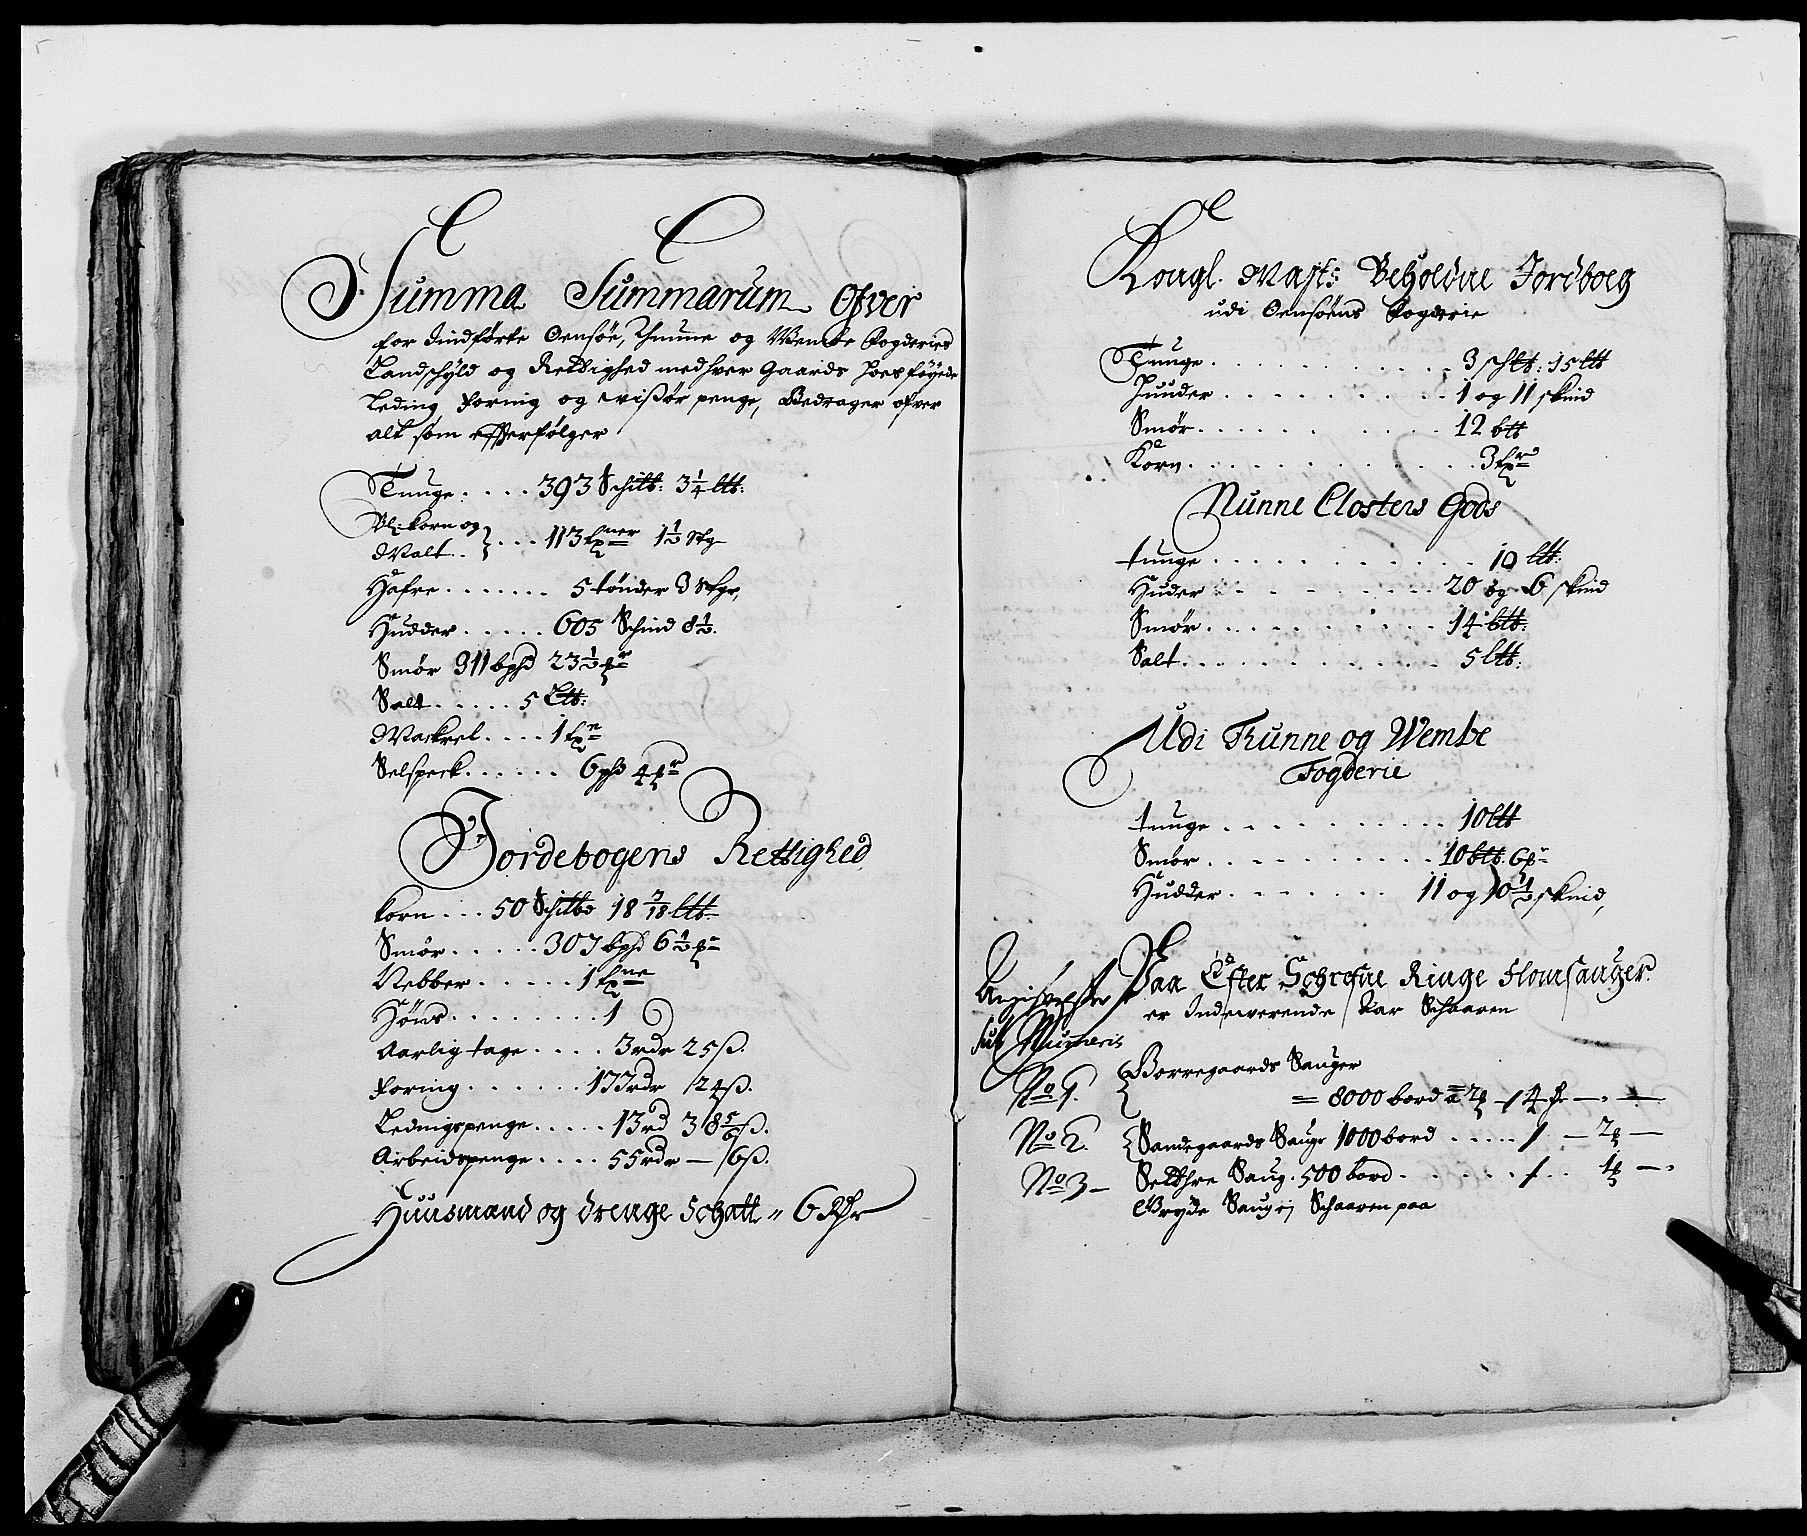 Summa Summarum Ofver
for Indførte Oensøe, Thunne og Wembe Fogderies
Landschyld og Rettighed med hver Gaards Hoesføyede
Leding Foring og wisøer penge, Bedrager ofver
alt som effterfølger
Tunge .... 393 Schitt: 3 1/4 ltt:
Bl: korn og
Malt .. } ... 113 1 1/2 Stgr
Hafre ....... 5 tønder 3 Stgr,
Hudder ..... 605 Schind 8 1/2.
Smør 311 bphd 23 1/2
Salt ..... 5 Ltt:
Mackrel .... 1
Selspeck ...... 6 phd 4
Jordebogens Rettighed
korn ... 50 Schittd 18 7/18 ltt.
Smør ..... 307 bphd 6 1/2
Nebber ..... 1
Høns ........ 1
Aarlig tage .... 3 rdr 25 ß.
Foring ...... 177 rdr 24 ß.
Ledingspenge ..... 13 rd 38 5/6 ß.
Arbeidspenge .... 55 rdr — 6 ß.
Huusmand og drenge Schatt " 6 Rdr
Kongl. Mayts: Beholdne Jordboeg
udi Oensøens Fogderie
Tunge ............ 3 schtt: 15 ltt
Huuder .......... 1 og 11 skind
Smør ........... 12 btt
Korn ............. 3
Nunne Closters Gods
tunge ............ 10 ltt:
Huder .......... 20 og 6 skind
Smør ........... 14 btt:
Salt ............ 5 ltt:
Udi Thunne og Wembe
Fogderie
tunge ........... 10 ltt
Smør .......... 10 btt 6
Hudder ........ 11 og 10 1/2 skind,
Paa Efter Schrefne Ringe Flomsauger
er Indeværende Aar Schaaren
sub Numeris
No 1. { Borregaards Sauger
= 8000 bord
No 2. { Sandegaards Sauge 1000 bord
No 3 — Setthre Saug. 500 bord
Bryde Saugej Schaaren paa